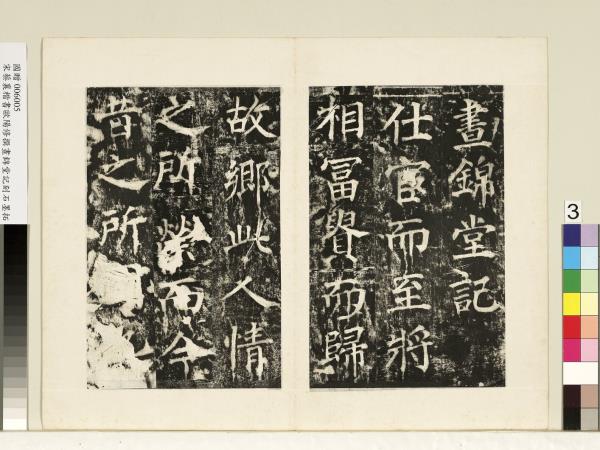 晝錦堂記
仕宦而至將
相冨貴而歸
故鄉此人情
之所榮而今
昔之所
國贈 006005
宋蔡襄楷書歐陽修撰晝錦堂記剖石墨拓
3